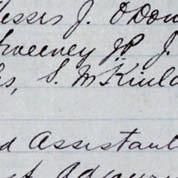 esses J. O'Don
Sweeney JP J.
s, S. McKinl
d Assistant